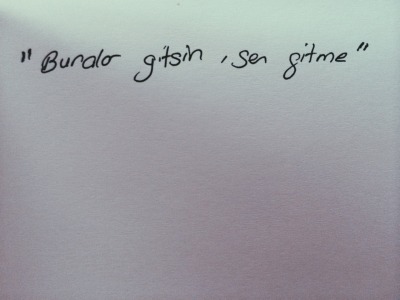 "Buralar gitsin, sen gitme"